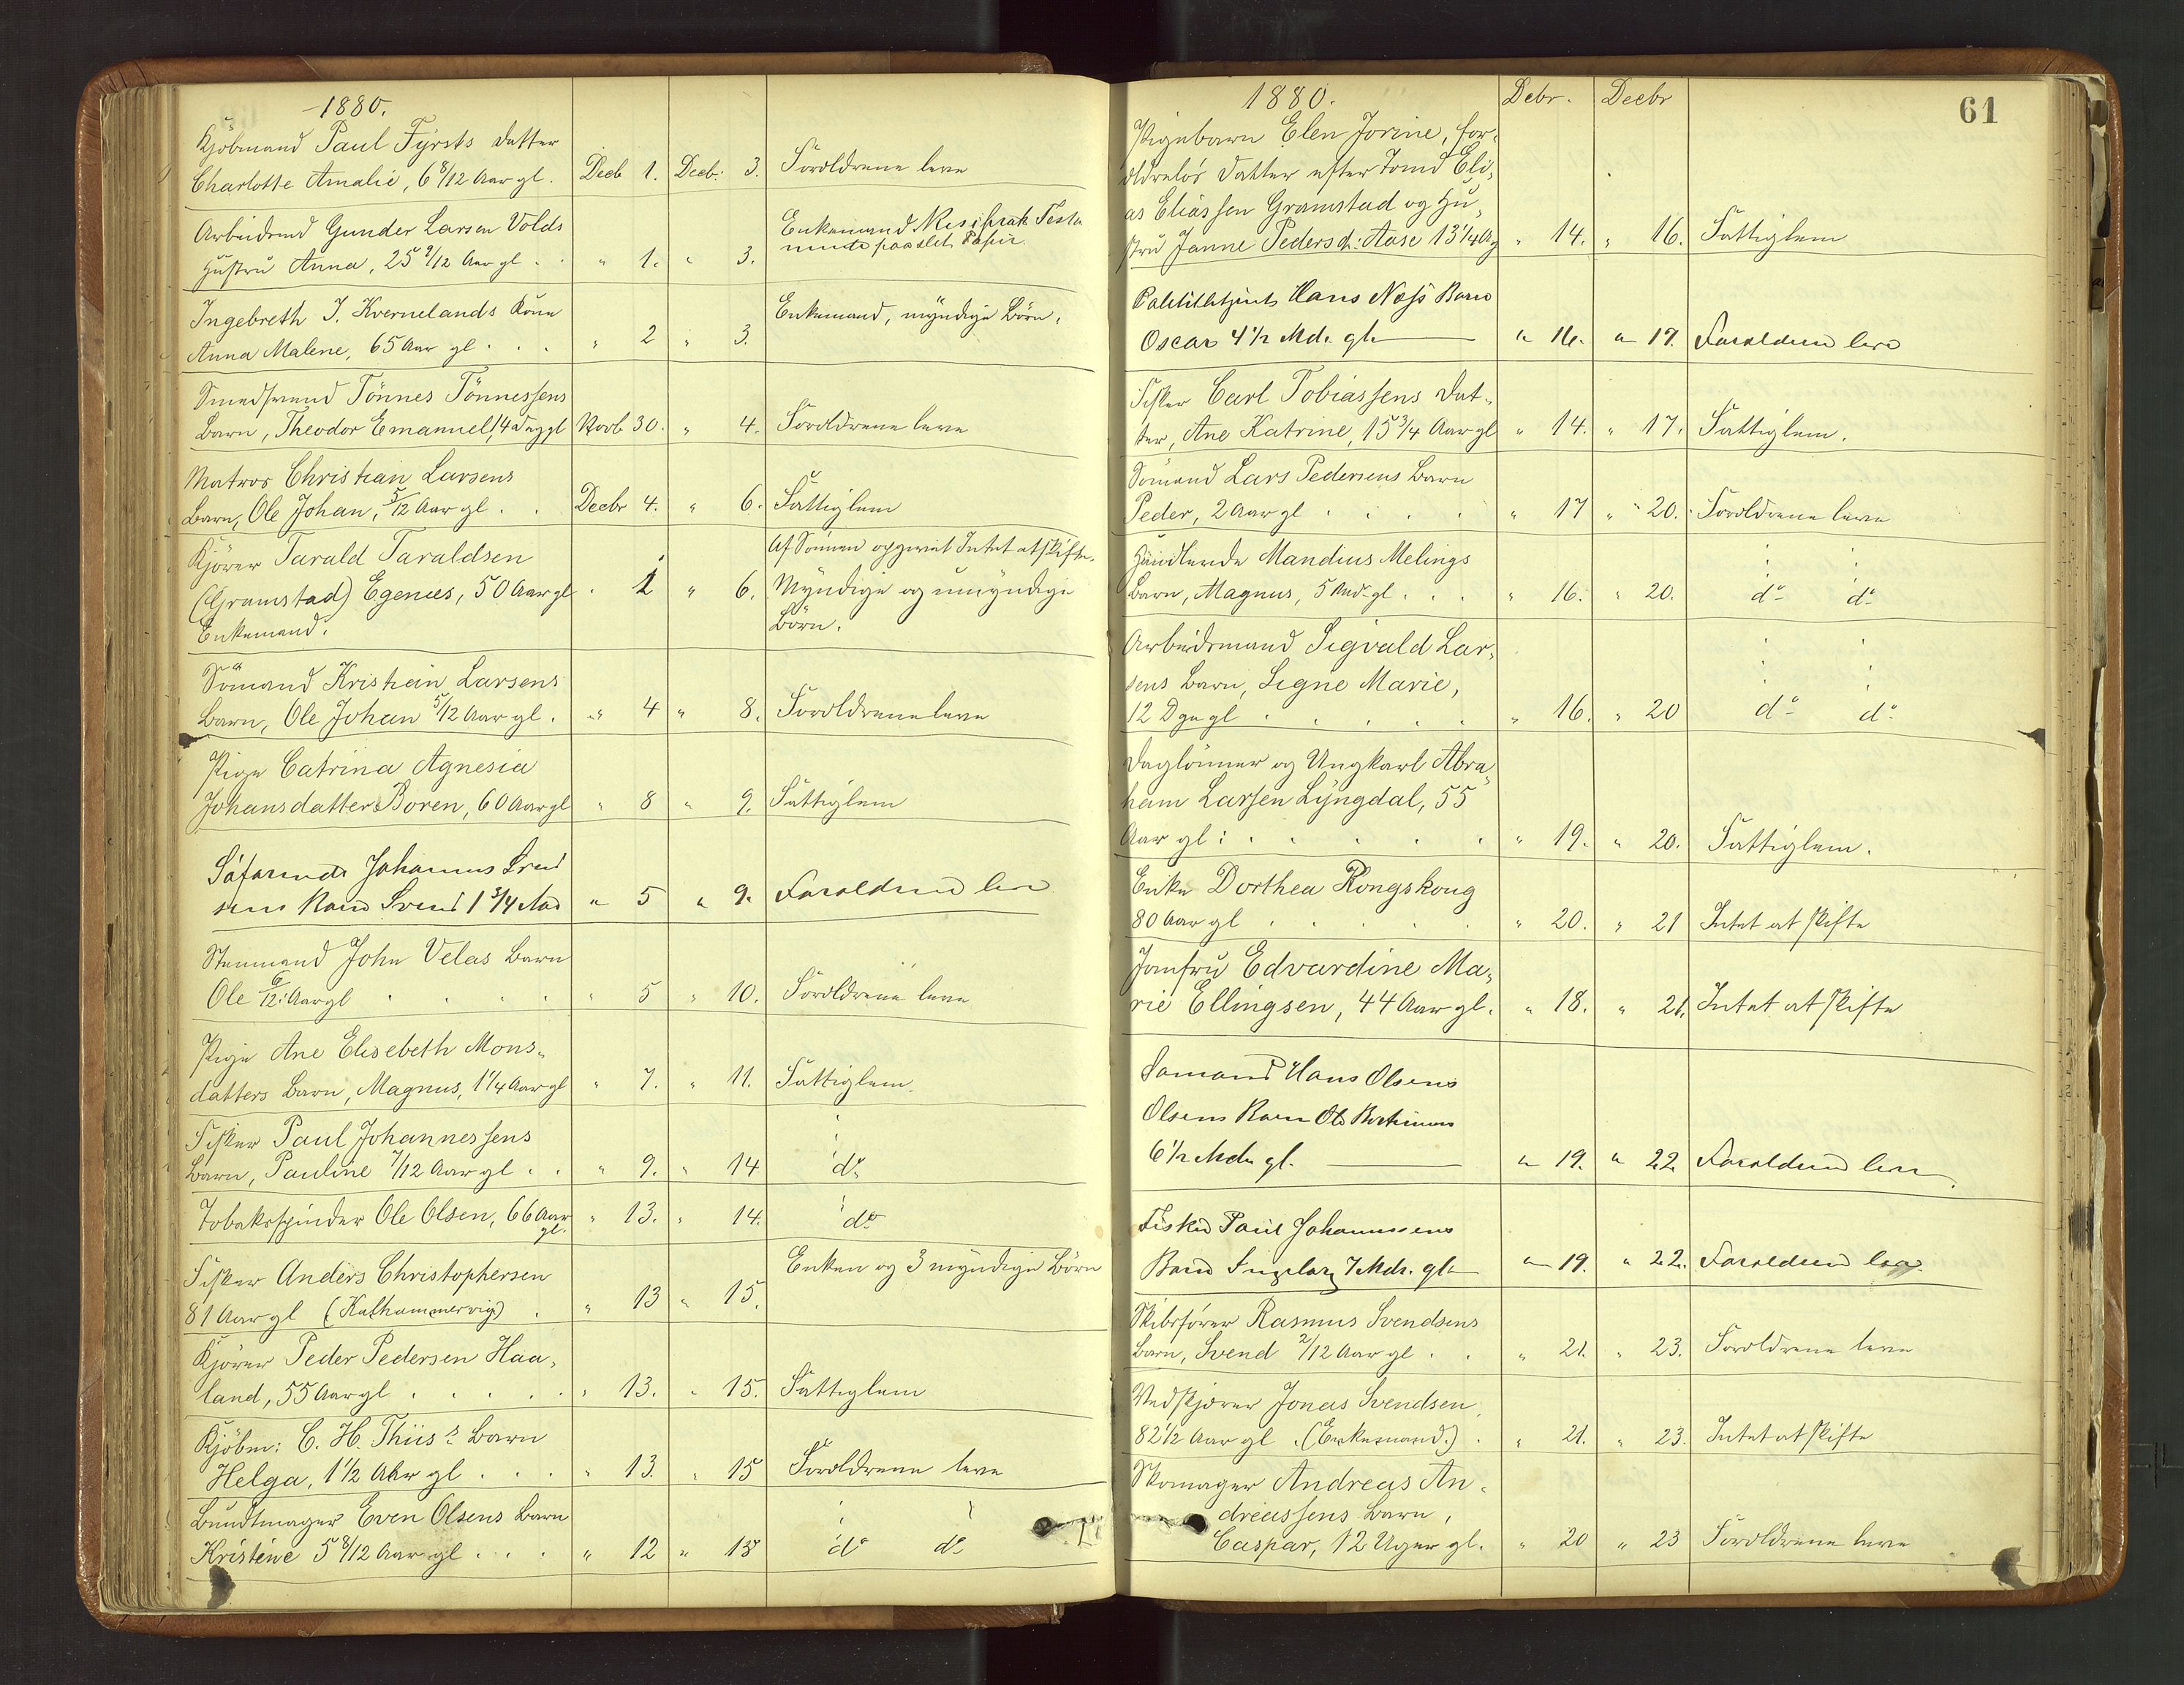 1880.
Kjöbmand Paul Fyrsts Datter
Charlotte Amalie, 6 8/12 Aar gl. Decb 1. Decb: 3. Forældrene leve
Arbeidsmd Gunder Larsen Volds
Hustru Anna, 25 9/12 Aar gl. . " 1. " 3. Enkemand Resiprok Testa
mente paa slet. Papir.
Ingebreth J. Kvernelands Kone
Anna Malene, 65 Aar gl . . . " 2 " 3. Enkemand, myndige Börn.
Smedsvend Tönnes Tönnessens
Barn, Theodor Emanuel 14 Dage gl Novb 30. " 4. Forældrene leve
Matros Christian Larsens
Barn, Ole Johan, 5/12 Aar gl . . Decbr 4. " 6. Fattiglem
Kjörer Tarald Taraldsen
(Gramstad) Egenæs, 50 Aar gl . 1 " 6. Af Sönnen opgivet Intet at skifte.
Enkemand. Myndige og umyndige
Börn.
Sömand Kristian Larsens
Barn, Ole Johan 5/12 Aar gl. " 4 " 8. Forældrene leve
Pige Catrina Agnesia
Johansdatter Boren, 60 Aar gl " 8 " 9. Fattiglem
Söfarende Johannes Svend
sens Barn Svend 1 3/4 Aar " 5 " 9. Forældrene leve
Stenmand John Velas Barn
Ole 6/12 Aar gl . . . . " 5 " 10. Forældrene leve
Pige Ane Elisebeth Mons-
datters Barn, Magnus, 1 1/4 Aar gl " 7. " 11. Fattiglem
Fisker Paul Johannessens
Barn, Pauline 7/12 Aar gl . . " 9. " 14 do
Tobakspinder Ole Olsen, 66 Aar
gl. " 13. " 14. do
Fisker Anders Christophersen
81 Aar gl (Kalhammervig) . " 13 " 15. Enken og 3 myndige Börn
Kjörer Peder Pedersen Haa-
land, 55 Aar gl . . . . . " 13. " 15. Fattiglem
Kjöbm: C. H. Thiis's Barn
Helga, 1 1/2 Aar gl . . . " 13. " 15 Forældrene leve
Bundtmager Even Olsens Barn
Kristine 5 8/12 Aar gl . . . " 12 " 18 do do
1880. Debr. Decbr 61
Pigebarn Elen Jorine, for-
ældrelös Datter efter Tomd Eli-
as Eliassen Gramstad og Hu-
stru Janne Pedersd: Aase 13 1/4 A g " 14. " 16. Fattiglem
Politibetjent Hans Næss Barn
Oscar 4 1/2 Md. gl " 16. " 17. Forældrene leve
Fisker Carl Tobiassens Dat-
ter, Ane Katrine, 15 3/4 Aar gl " 14. " 17. Fattiglem.
Sömand Lars Pedersens Barn
Peder, 2 Aar gl . . . . " 17 " 20. Forældrene leve
Handlende Mandius Melings
Barn, Magnus, 5 Md. gl . . . " 16. " 20. do do
Arbeidsmand Sigvald Lar-
sens Barn, Signe Marie,
12 Dge gl . . . . . " 16. " 20 do do
Daglönner og Ungkarl Abra-
ham Larsen Lyngdal, 55
Aar gl: . . . . . " 19. " 20. Fattiglem.
Enke Dorthea Kongskoug
80 Aar gl . . . . . " 20. " 21 Intet at skifte
Jomfru Edvardine Ma-
rie Ellingsen, 44 Aar gl. " 18. " 21. Intet at skifte
Sömand Hans Olsens
Olsens Barn Ole
6 1/2 Mdr gl. " 19. " 22 Forældrene leve
Fisker Paul Johannessens
Barn 7 Mdr. gl " 19. " 22. Forældrene leve
Skibsförer Rasmus Svendsens
Barn, Svend 2/12 Aar gl . . " 21. " 23. Forældrene leve
Vedskjærer Jonas Svendsen
82 1/2 Aar gl. (Enkemand.) . " 21. " 23. Intet at skifte
Skomager Andreas An-
dreassens Barn,
Caspar, 12 Uger gl. " 20 " 23 Forældrene leve